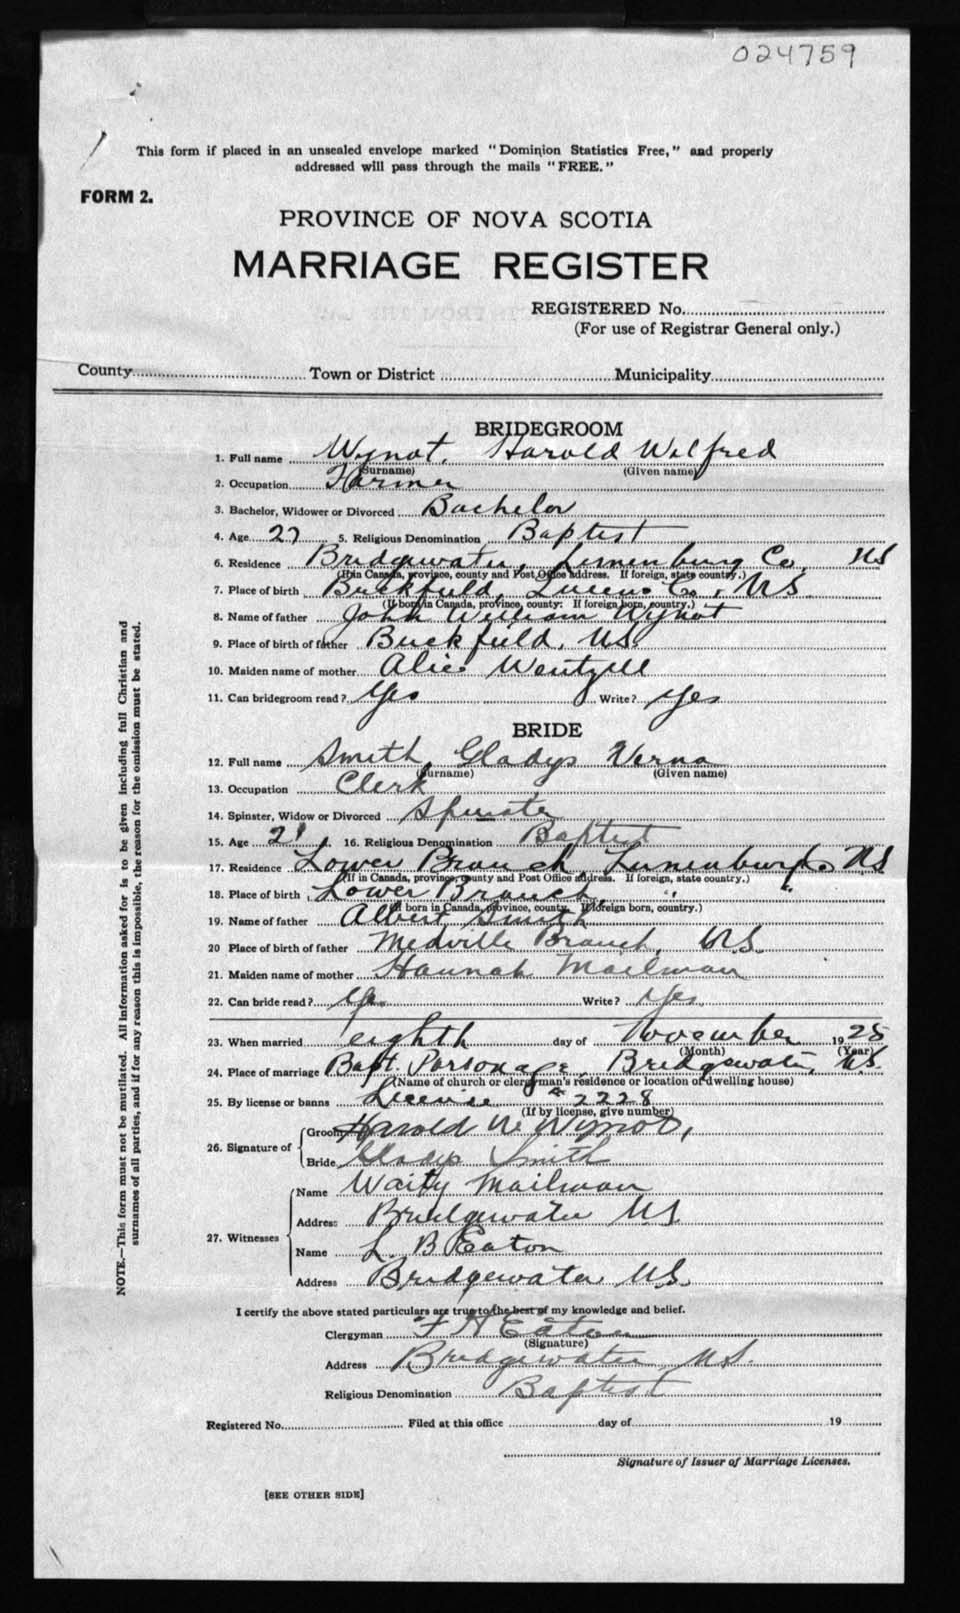 024759
This form if placed in an unsealed envelope marked "Dominion Statistics Free," and properly
addressed will pass through the mails "FREE."
FORM 2.
PROVINCE OF NOVA SCOTIA
MARRIAGE REGISTER
REGISTERED No.
(For use of Registrar General only.)
County Town or District Municipality
BRIDEGROOM
1. Full name Wynot, Harold Wilfred
(Surname) (Given name)
2. Occupation Farmer
3. Bachelor, Widower or Divorced Bachelor
4. Age 27 5. Religious Denomination Baptist
6. Residence Bridgewater, Lunenburg Co. NS
(If in Canada, province, county and Post Office address. If foreign, state country.)
7. Place of birth Buckfield, Co, NS.
(If born in Canada, province, county: If foreign born, country.)
8. Name of father John William Wynot
9. Place of birth of father Buckfield, NS.
10. Maiden name of mother Alice Wentzell
11. Can bridegroom read? Yes Write? Yes
BRIDE
12. Full name Smith, Gladys Verna
(Surname) (Given name)
13. Occupation Clerk
14. Spinster, Widow or Divorced Spinster
15. Age 21 16. Religious Denomination Baptist
17. Residence Lower Branch Lunenburg Co NS
(If in Canada, province, county and Post Office address. If foreign, state country.)
18. Place of birth Lower Branch, " "
(If born in Canada, province, county. If foreign born, country.)
19. Name of father Albert Smith
20 Place of birth of father Branch, N.S.
21. Maiden name of mother Hannah Mailman
22. Can bride read? Yes Write? Yes
23. When married eighth day of November 1928
(Month) (Year)
24. Place of marriage Bapt. Parsonage, Bridgewater, N.S.
(Name of church or clergyman's residence or location of dwelling house)
25. By license or banns License # 2228
(If by license, give number)
26. Signature of Groom Harold W. Wynot,
Bride Gladys Smith
27. Witnesses Name Mailman
Address Bridgewater NS
Name L. B Eaton
Address Bridgewater N.S.
I certify the above stated particulars are true to the best of my knowledge and belief.
Clergyman F H Eaton
(Signature)
Address Bridgewater N.S.
Religious Denomination Baptist
Registered No. Filed at this office day of 19
Signature of Issuer of Marriage Licenses.
[SEE OTHER SIDE]
NOTE.—This form must not be mutilated. All information asked for is to be given including full Christian and
surnames of all parties, and if for any reason this is impossible, the reason for the omission must be stated.